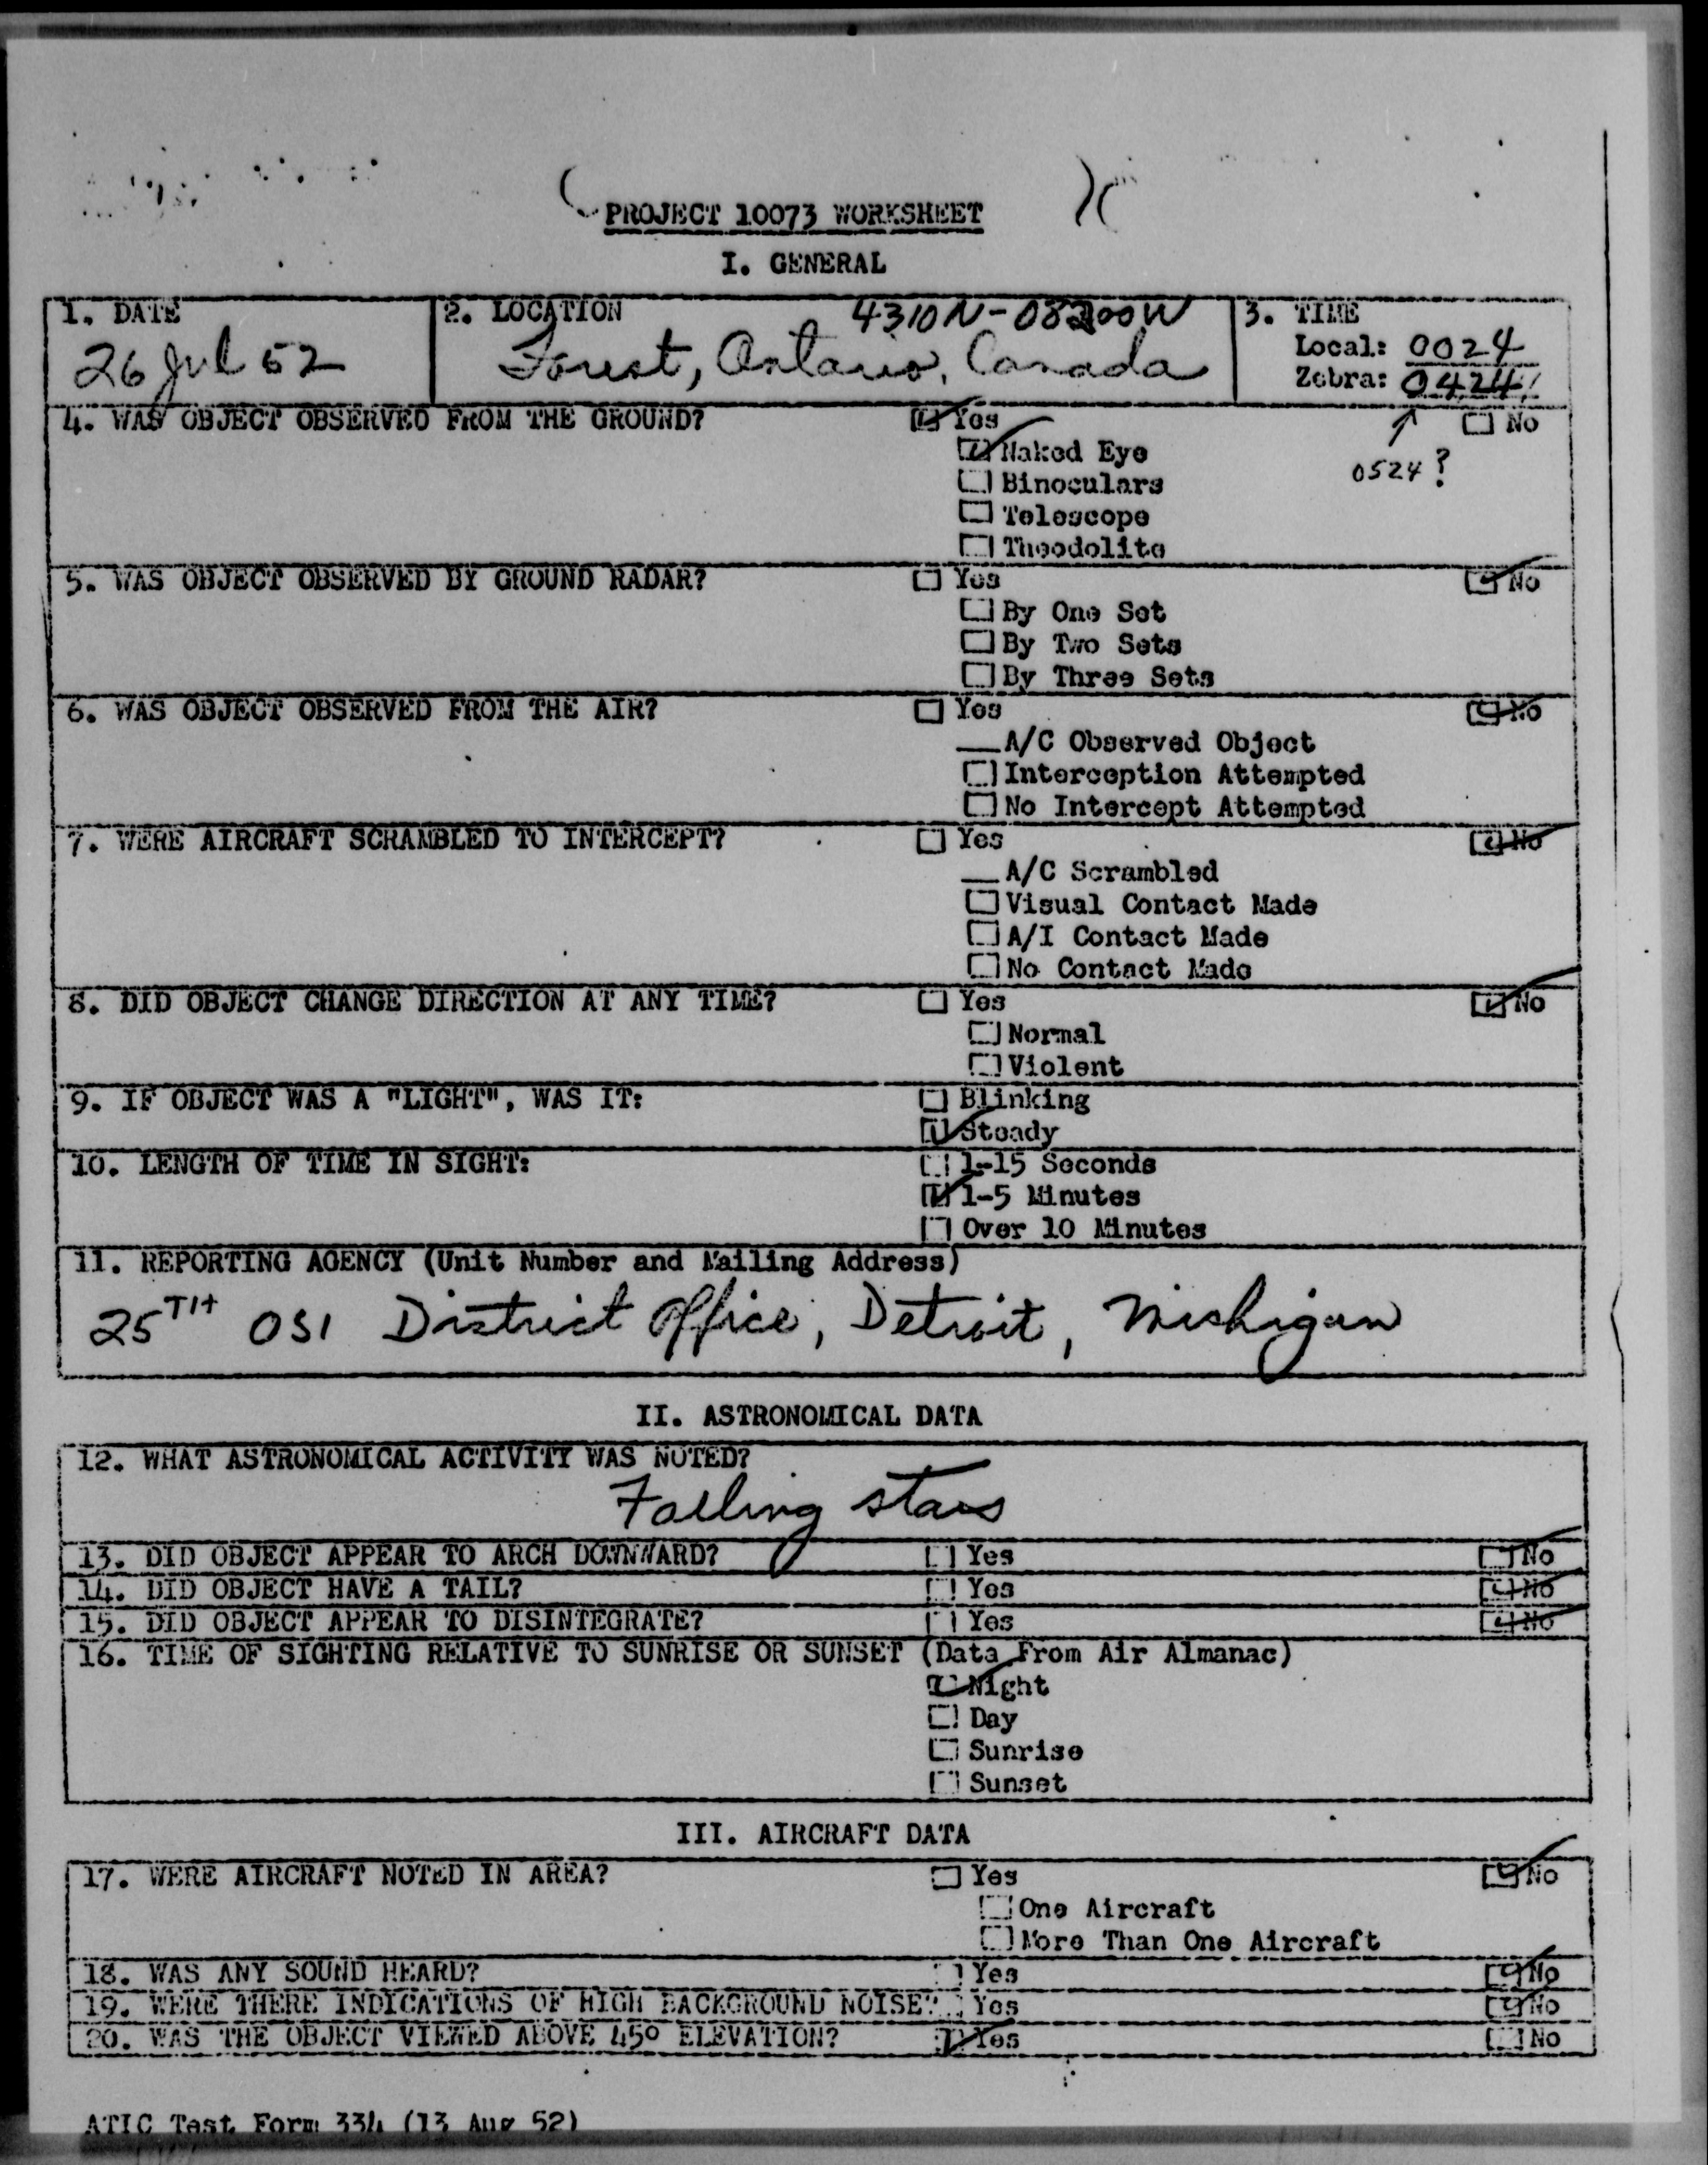 PROJECT 10073 WORKSHEET
I. GENERAL
1. DATE
26 Jul 52
2. LOCATION 4310N-08200W
Forest, Ontario, Canada
3. TIME
Local: 0024
Zebra: 0424
0524?
4. WAS OBJECT OBSERVED FROM THE GROUND? Yes No
Naked Eye
Binoculars
Telescope
Theodolite
5. WAS OBJECT OBSERVED BY GROUND RADAR? Yes No
By One Set
By Two Sets
By Three Sets
6. WAS OBJECT OBSERVED FROM THE AIR? Yes No
A/C Observed Object
Interception Attempted
No Intercept Attempted
7. WERE AIRCRAFT SCRAMBLED TO INTERCEPT? Yes No
A/C Scrambled
Visual Contact Made
A/I Contact Made
No Contact Made
8. DID OBJECT CHANGE DIRECTION AT ANY TIME? Yes No
Normal
Violent
9. IF OBJECT WAS A "LIGHT", WAS IT: Blinking
Steady
10. LENGTH OF TIME IN SIGHT: 1-15 Seconds
1-5 Minutes
Over 10 Minutes
11. REPORTING AGENCY (Unit Number and Mailing Address)
25TH OSI District Office, Detroit, Michigan
II. ASTRONOMICAL DATA
12. WHAT ASTRONOMICAL ACTIVITY WAS NOTED?
Falling stars
13. DID OBJECT APPEAR TO ARCH DOWNWARD? Yes No
14. DID OBJECT HAVE A TAIL? Yes No
15. DID OBJECT APPEAR TO DISINTEGRATE? Yes No
16. TIME OF SIGHTING RELATIVE TO SUNRISE OR SUNSET (Data From Air Almanac)
Night
Day
Sunrise
Sunset
III. AIRCRAFT DATA
17. WERE AIRCRAFT NOTED IN AREA? Yes No
One Aircraft
More Than One Aircraft
18. WAS ANY SOUND HEARD? Yes No
19. WERE THERE INDICATIONS OF HIGH BACKGROUND NOISE? Yes No
20. WAS THE OBJECT VIEWED ABOVE 45° ELEVATION? Yes No
ATIC Test Form 334 (13 Aug 52)